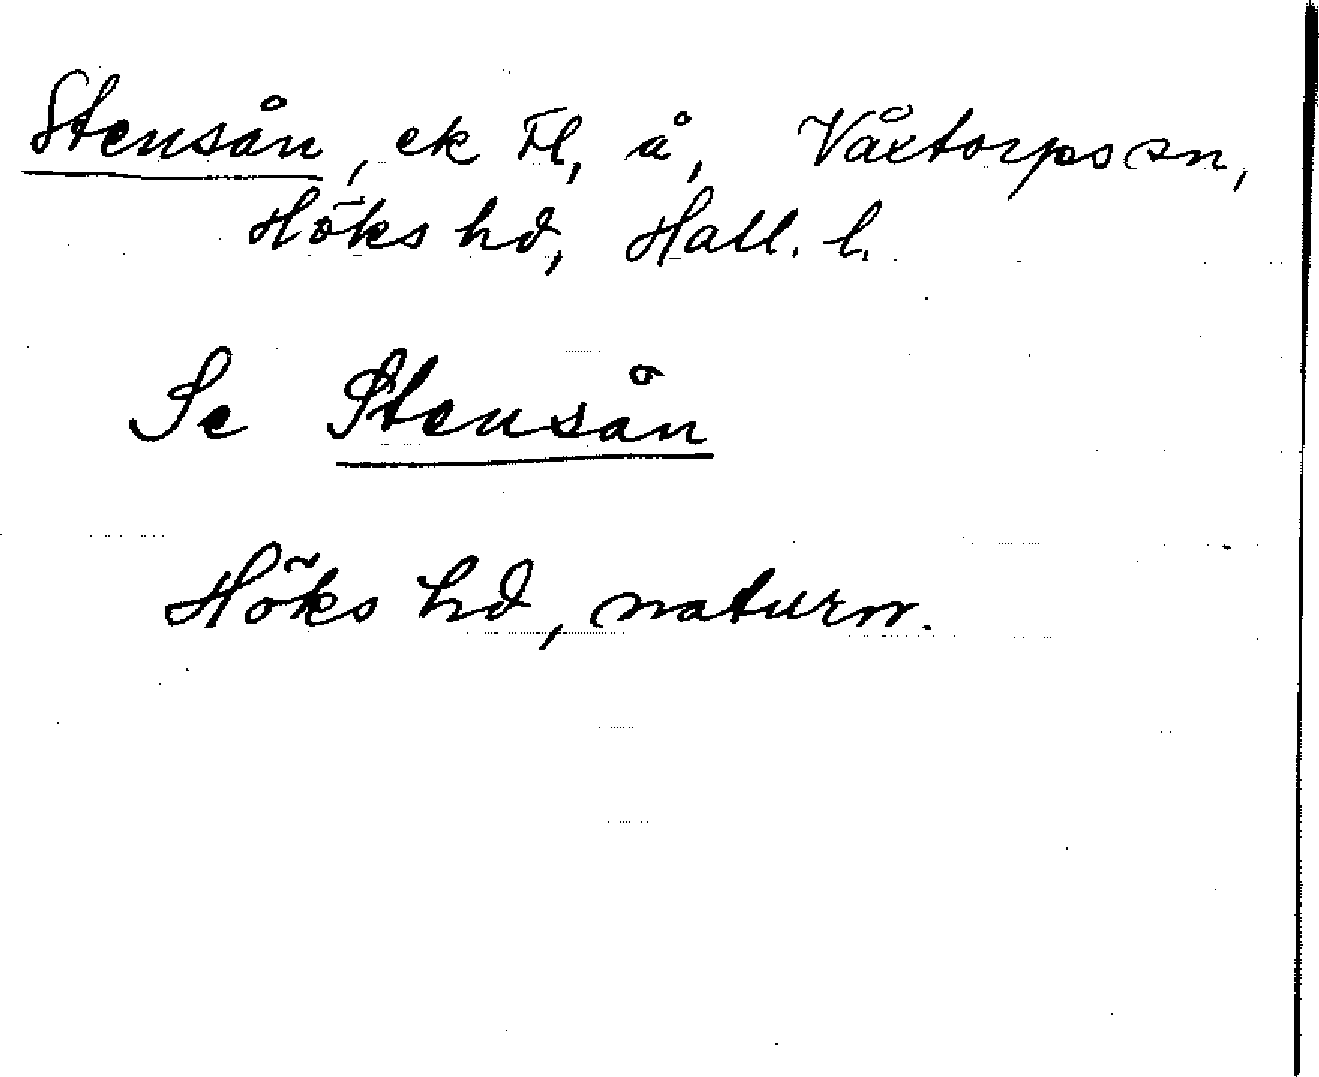 Stensån, ek Fl, å, Våxtorps sn,
Höks hd, Hall. l.
Se Stensån
Höks hd, naturn.